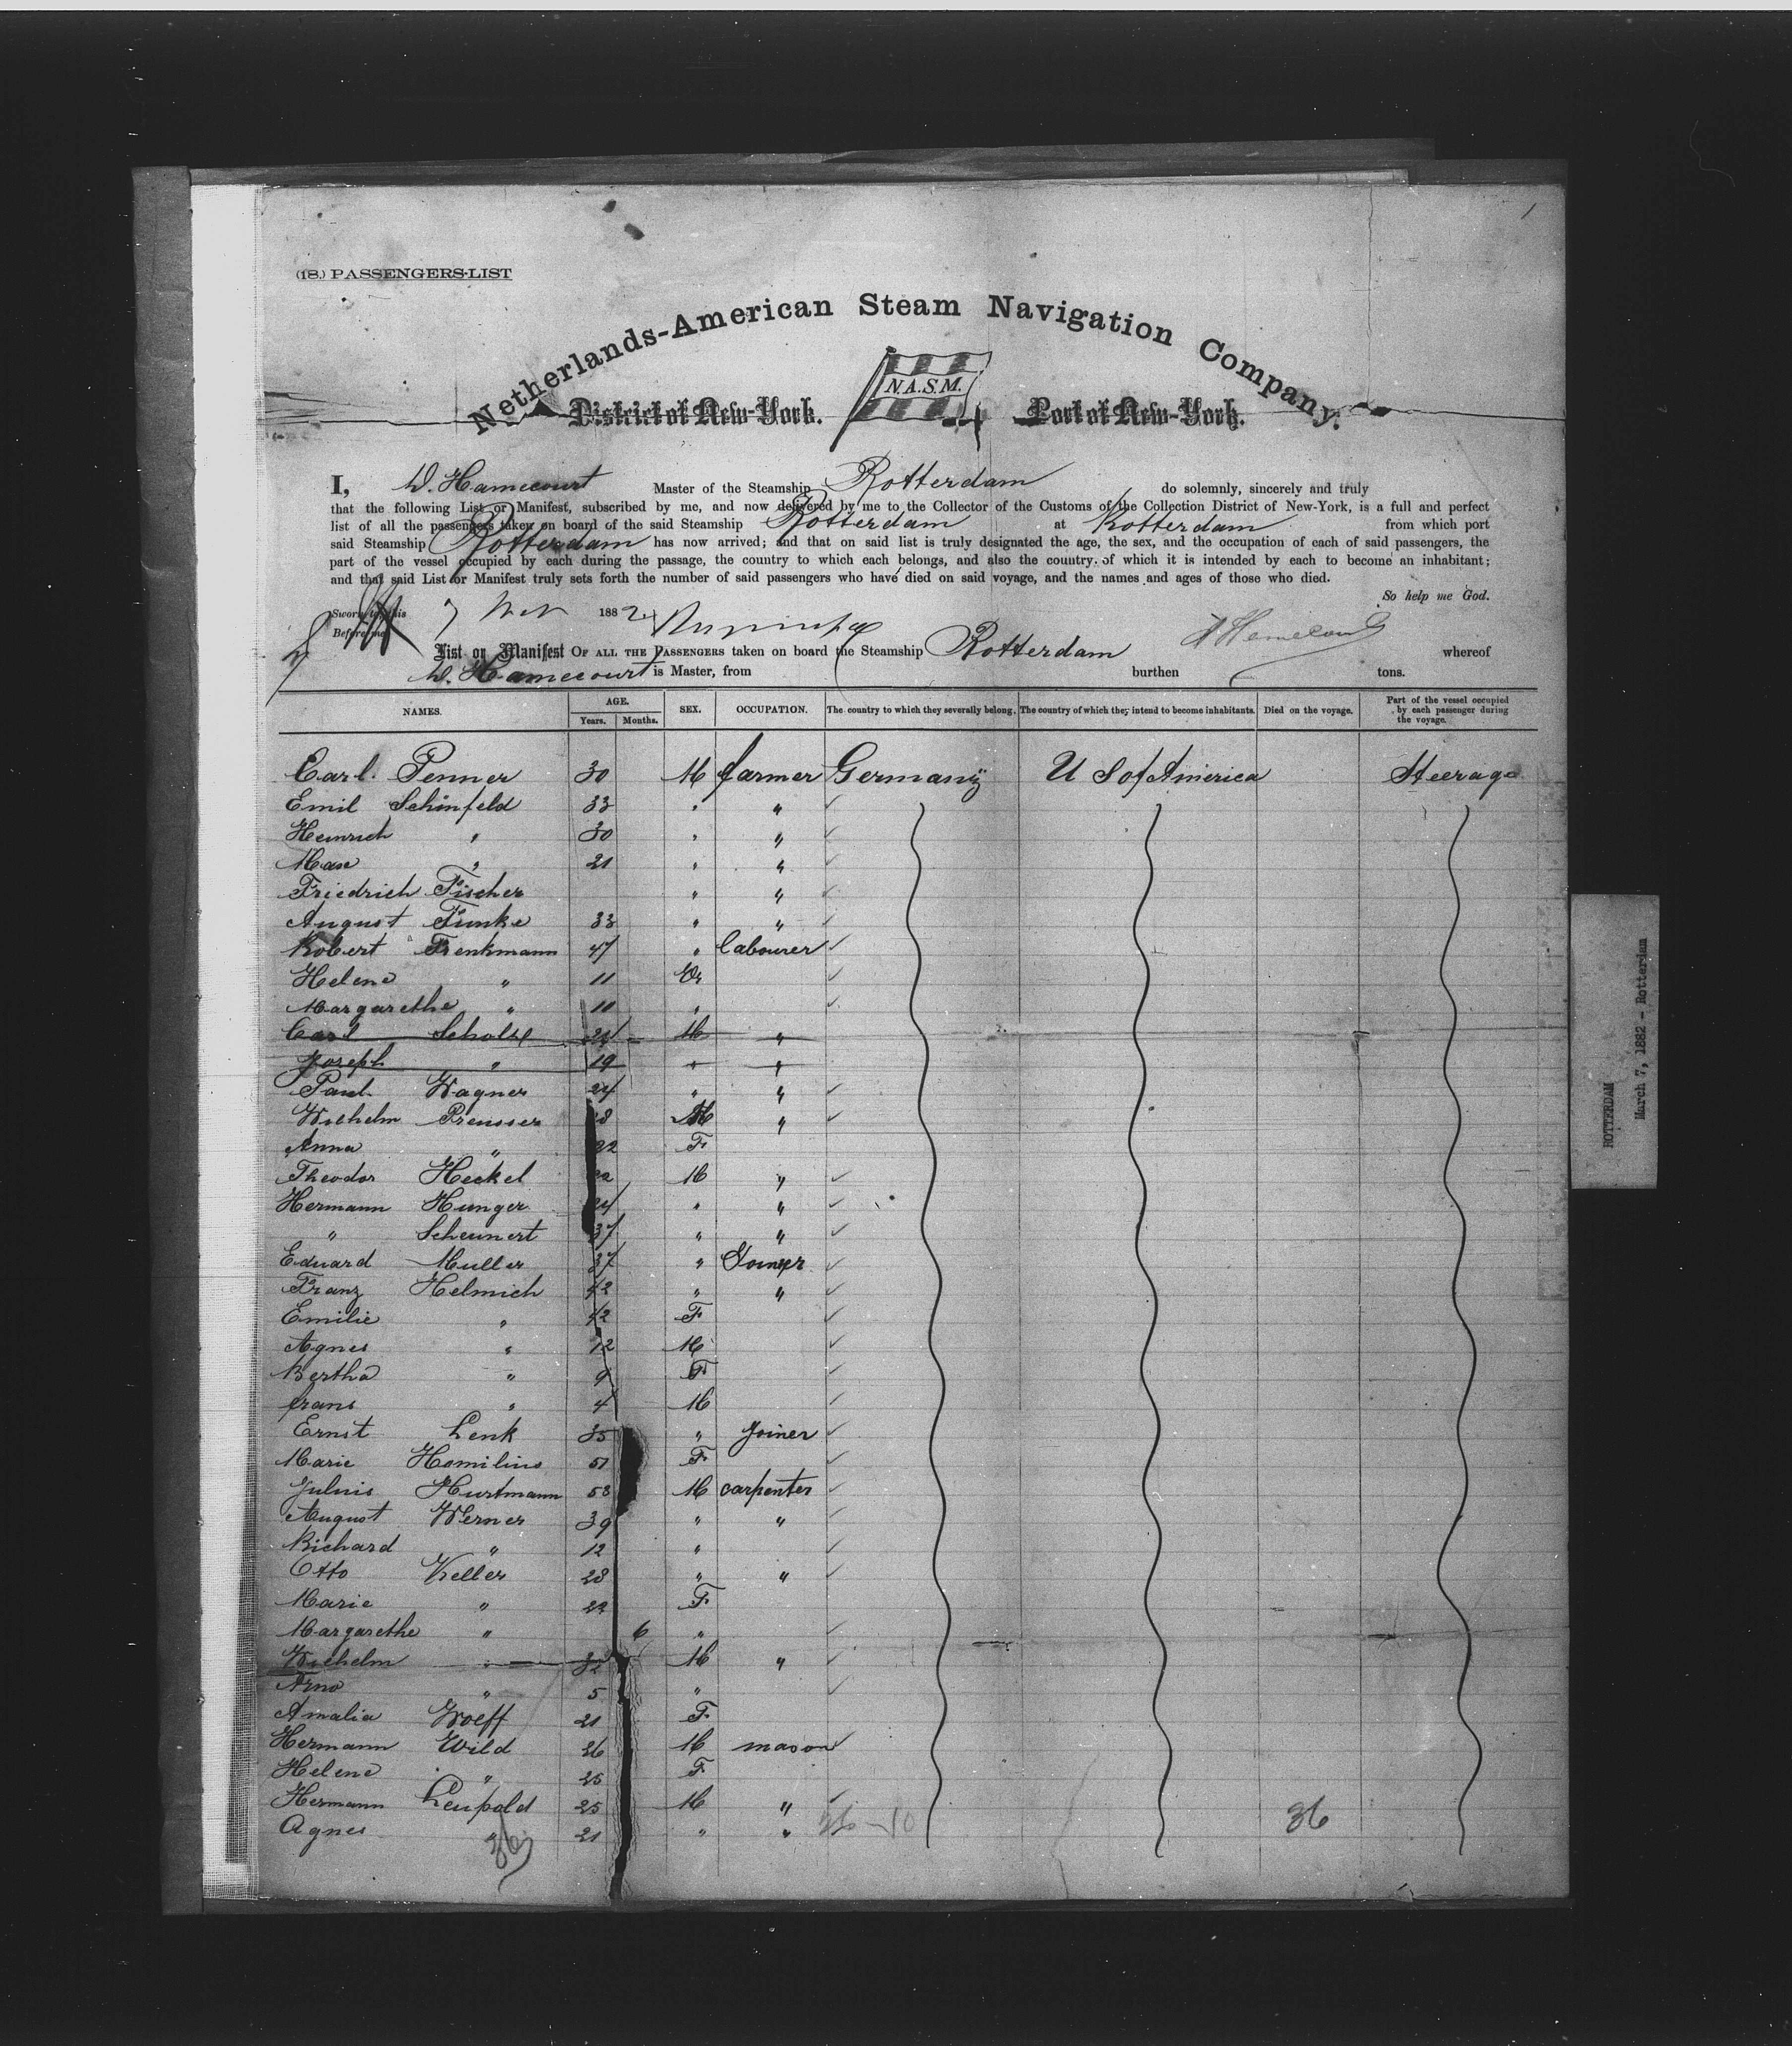 (18.) PASSENGERS-LIST
Netherlands-American Steam Navigation Company.
N.A.S.M.
District of New-York. Port of New-York.
I, D. Hamecourt Master of the Steamship Rotterdam do solemnly, sincerely and truly
that the following List or Manifest, subscribed by me, and now delivered by me to the Collector of the Customs of the Collection District of New-York, is a full and perfect
list of all the passengers taken on board of the said Steamship Rotterdam at Rotterdam from which port
said Steamship Rotterdam has now arrived; and that on said list is truly designated the age, the sex, and the occupation of each of said passengers, the
part of the vessel occupied by each during the passage, the country to which each belongs, and also the country of which it is intended by each to become an inhabitant;
and that said List or Manifest truly sets forth the number of said passengers who have died on said voyage, and the names and ages of those who died.
So help me God.
Sworn to this 7 1882
Before me
List or Manifest OF ALL THE PASSENGERS taken on board the Steamship Rotterdam whereof
D. Hamecourt is Master, from burthen tons.
NAMES. AGE. Years. Months. SEX. OCCUPATION. The country to which they severally belong. The country of which they intend to become inhabitants. Died on the voyage. Part of the vessel occupied by each passenger during the voyage.
Carl Penner 30 M farmer Germany U S of America Steerage
Emil Schinfeld 33 " "
Heinrich " 30 " "
Max " 21 " "
Friedrich Fischer " "
August Funke 33 " "
Robert Frenkmann 47 " labourer
Helene " 11
Margarethe " 10 "
Carl Scholze 24 M "
Joseph " 19 " "
Paul Wagner 24 " "
Wilhelm Preusser 28 M "
Anna " 22 F
Theodor Heckel 22 M "
Hermann Hunger 24 " "
" Scheunert 37 " "
Eduard Muller 37 " Joiner
Franz Helmich 42 " "
Emilie " 42 F
Agnes " 12 M
Bertha " 9 F
frans " 4 M
Ernst Lenk 35 " Joiner
Marie Homilius 51 F
Julius Hurtmann 53 M carpenter
August Werner 39 " "
Richard " 12 "
Otto Keller 28 " "
Marie " 22 F
Margarethe " 6 "
Wilhelm " 32 M "
Arno " 5 "
Amalia Woeff 21 F
Hermann Wild 26 M mason
Helene " 25 F
Hermann Leupold 25 M "
Agnes " 21 " "
36
36
ROTTERDAM
March 7, 1882 - Rotterdam